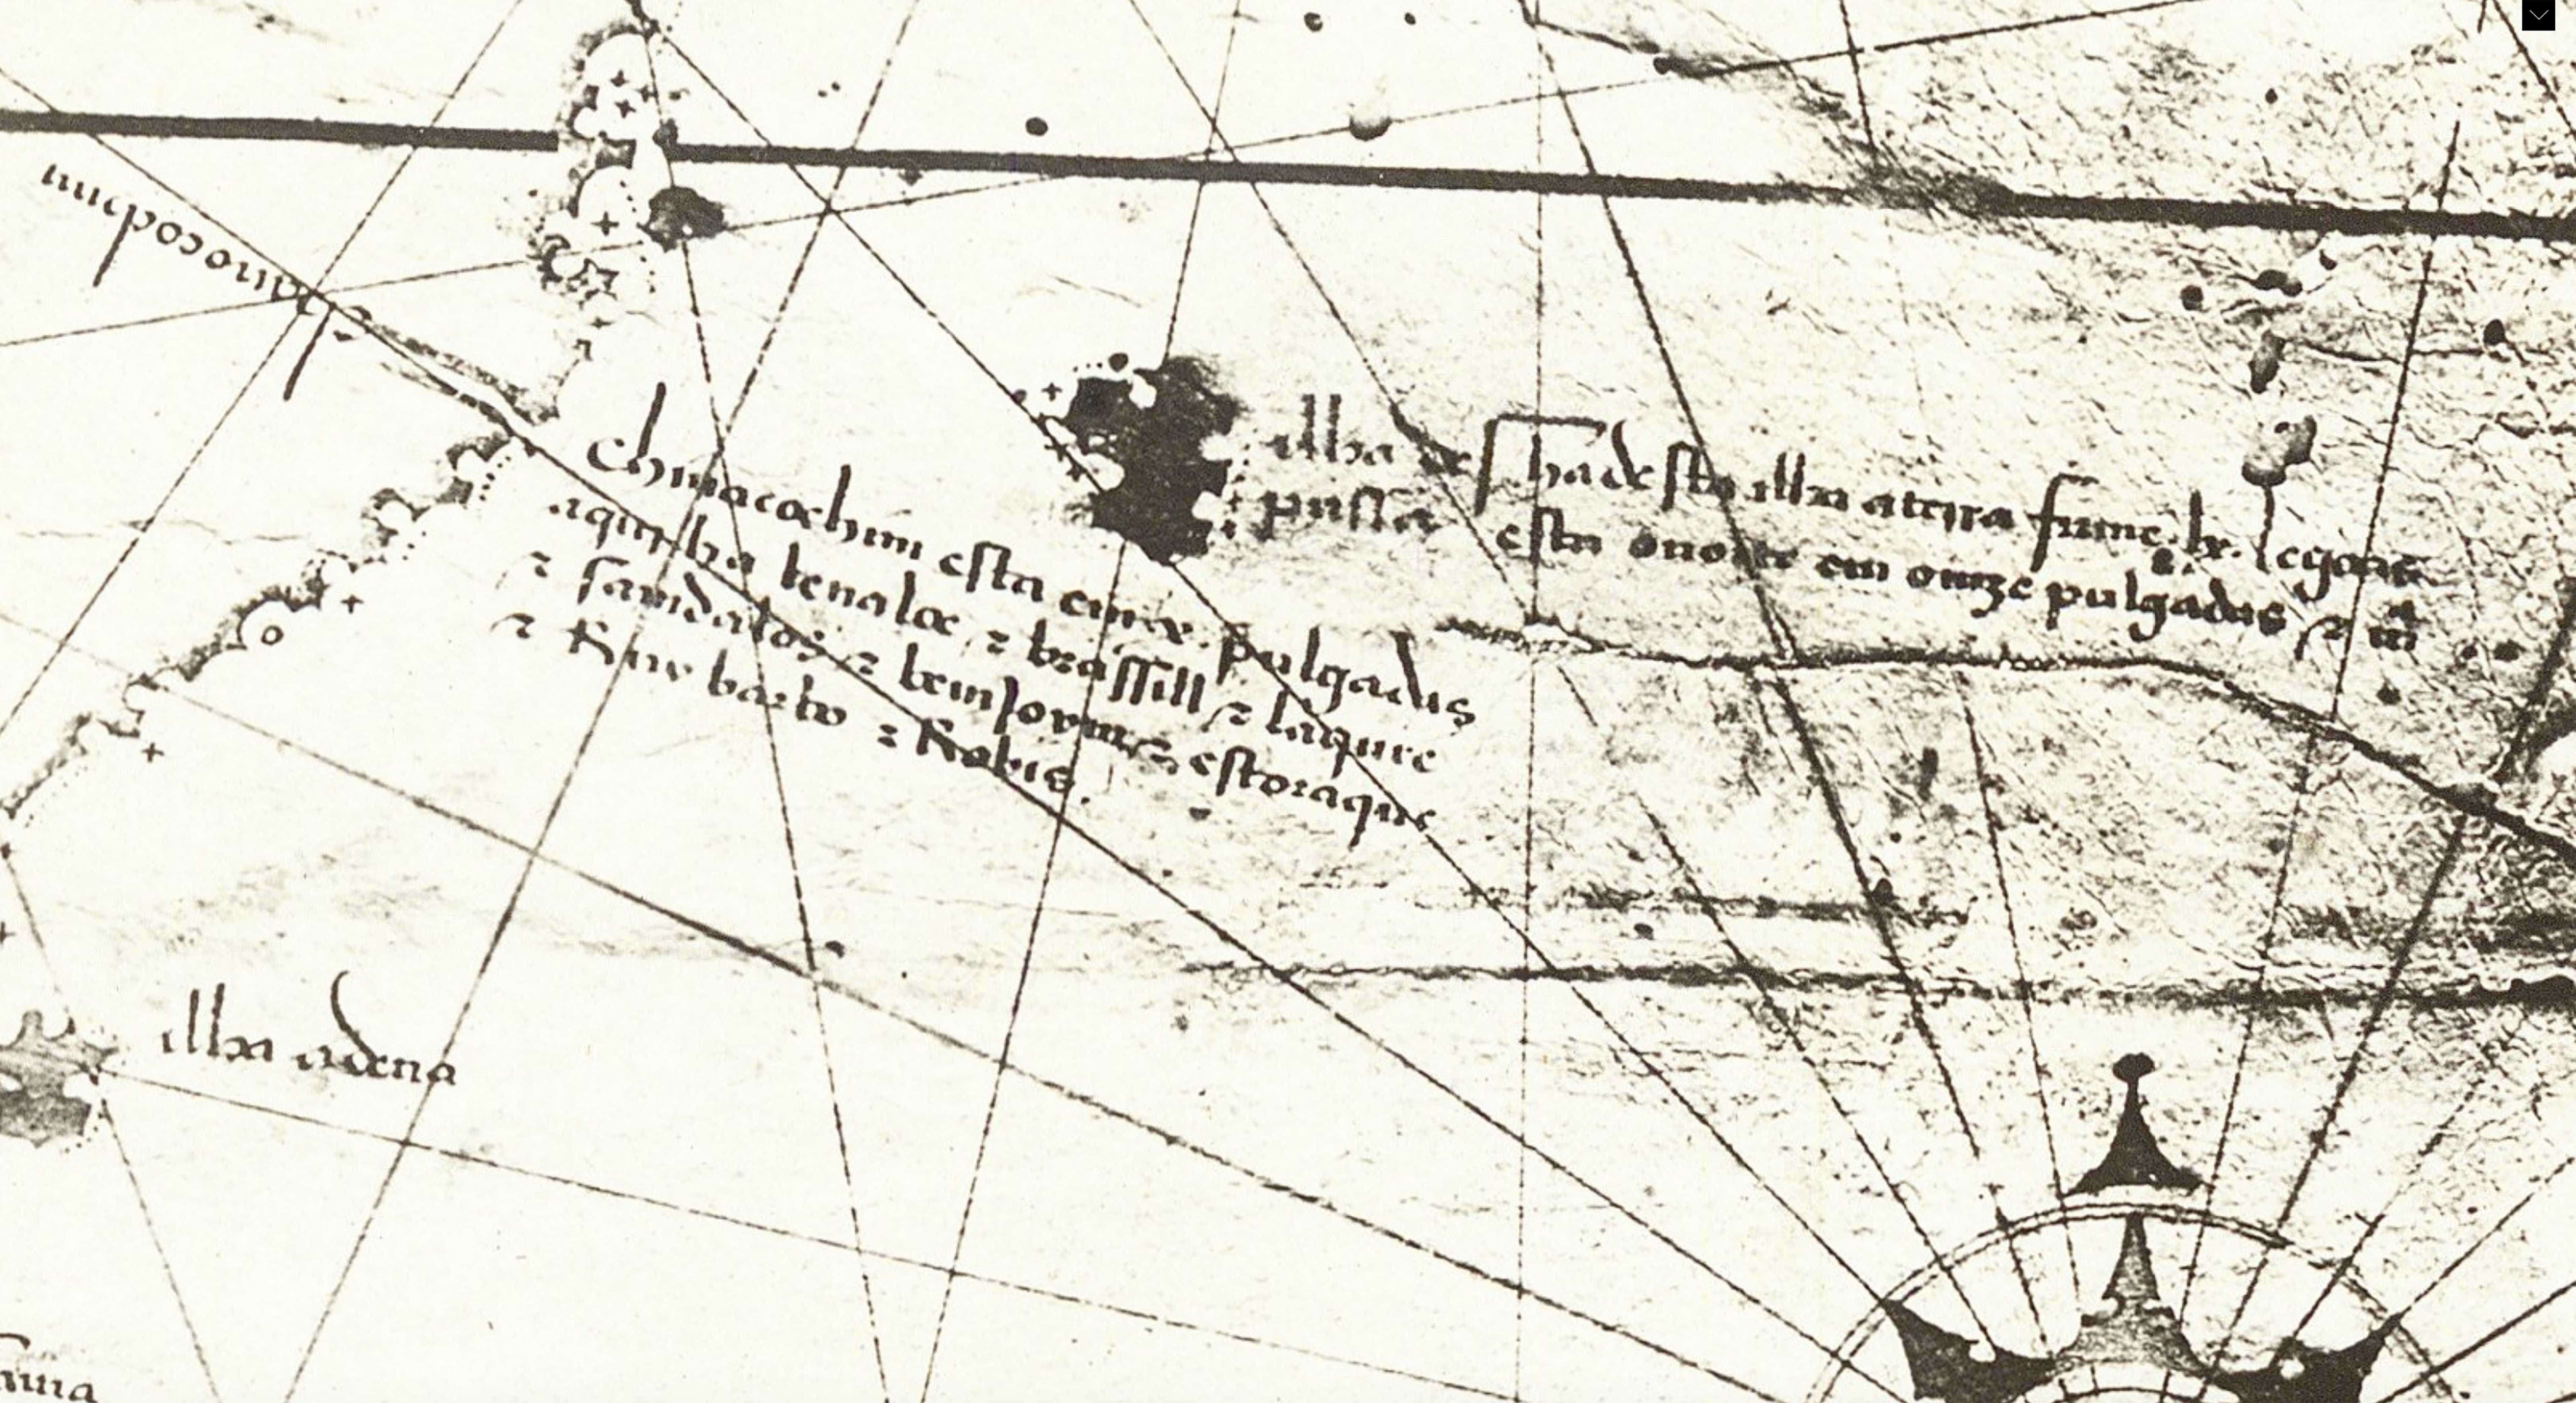 chinacochim
chinacochim esta em .x. pulgadas
aqui ha benaloe z brassill z laqure
z sandalos z beniJoym z estoraque
z Ruy barbo z Robis.
illa
pusta
ha de sta illa a terra firme .lx. legoas
esta o norte em omze pulgadas z m
illa adena